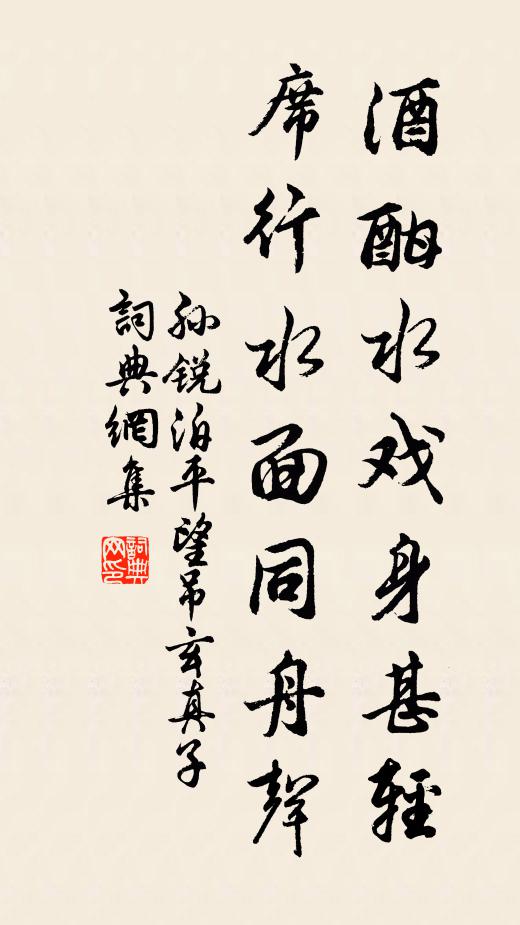 酒酣水戏身甚輕
席行水面同舟聲
孙锐泊平望吊玄真子
詞典網集
詞典网印